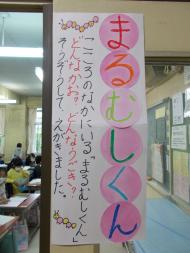 まるむしくん
「こころのなかにいる「まるむしくん」
どんなかお？どんなうごき？
そうぞうして、えがきました。